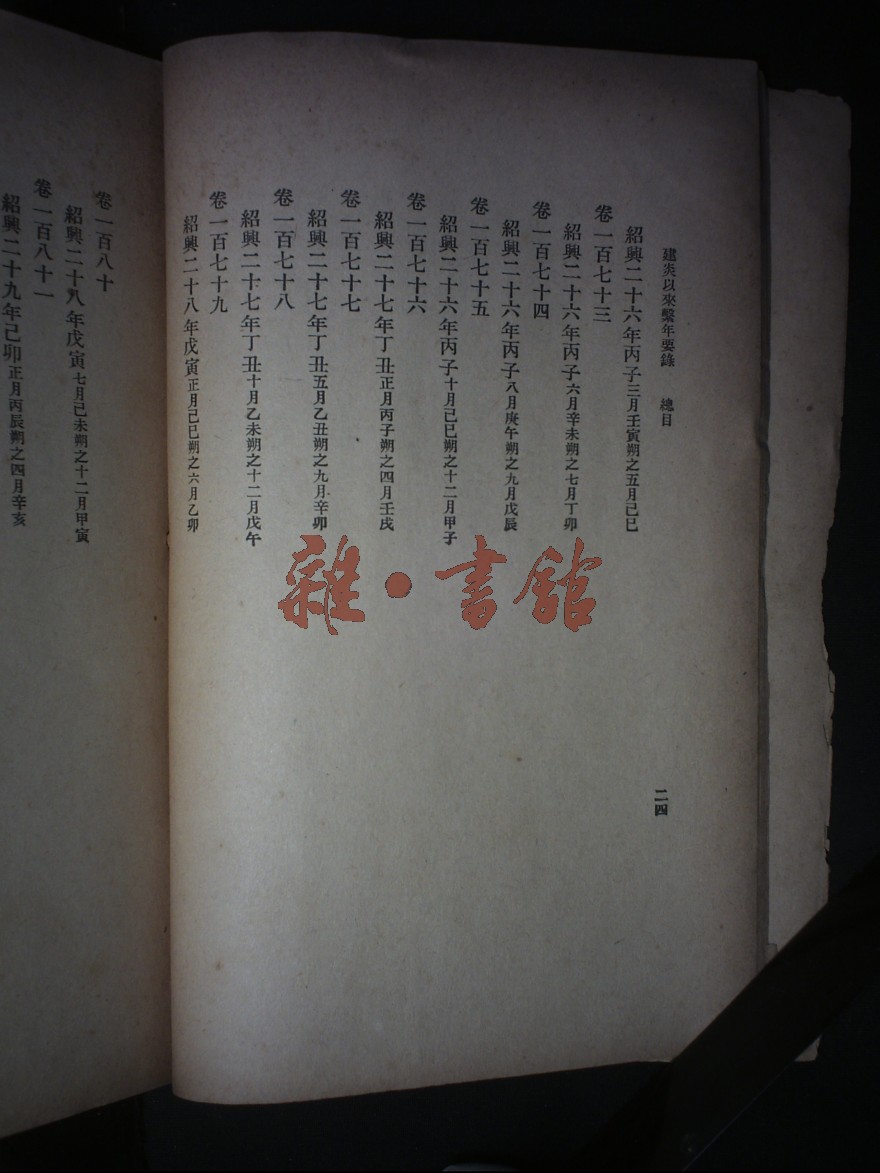 建炎以來繫年要錄　總目
二四
紹興二十六年丙子三月壬寅朔之五月己巳
卷一百七十三
紹興二十六年丙子六月辛未朔之七月丁卯
卷一百七十四
紹興二十六年丙子八月庚午朔之九月戊辰
卷一百七十五
紹興二十六年丙子十月己巳朔之十二月甲子
卷一百七十六
紹興二十七年丁丑正月丙子朔之四月壬戌
卷一百七十七
紹興二十七年丁丑五月乙丑朔之九月辛卯
卷一百七十八
紹興二十七年丁丑十月乙未朔之十二月戊午
卷一百七十九
紹興二十八年戊寅正月己巳朔之六月乙卯
卷一百八十
紹興二十八年戊寅七月己未朔之十二月甲寅
卷一百八十一
紹興二十九年己卯正月丙辰朔之四月辛亥
雜·書館